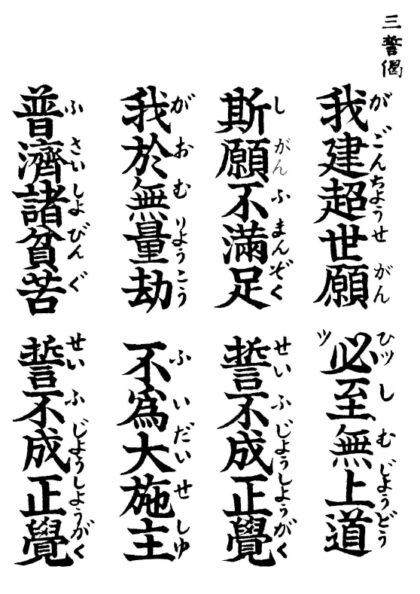 三誓偈
我建超世願 必至無上道
が ごん ちよう せ がん ひツ し む じよう どう
ツ
斯願不滿足 誓不成正覺
し がん ふ まん ぞく せい ふ じよう しよう がく
我於無量劫 不爲大施主
が お む りよう こう ふ い だい せ しゆ
普濟諸貧苦 誓不成正覺
ふ さい しよ びん ぐ せい ふ じよう しよう がく